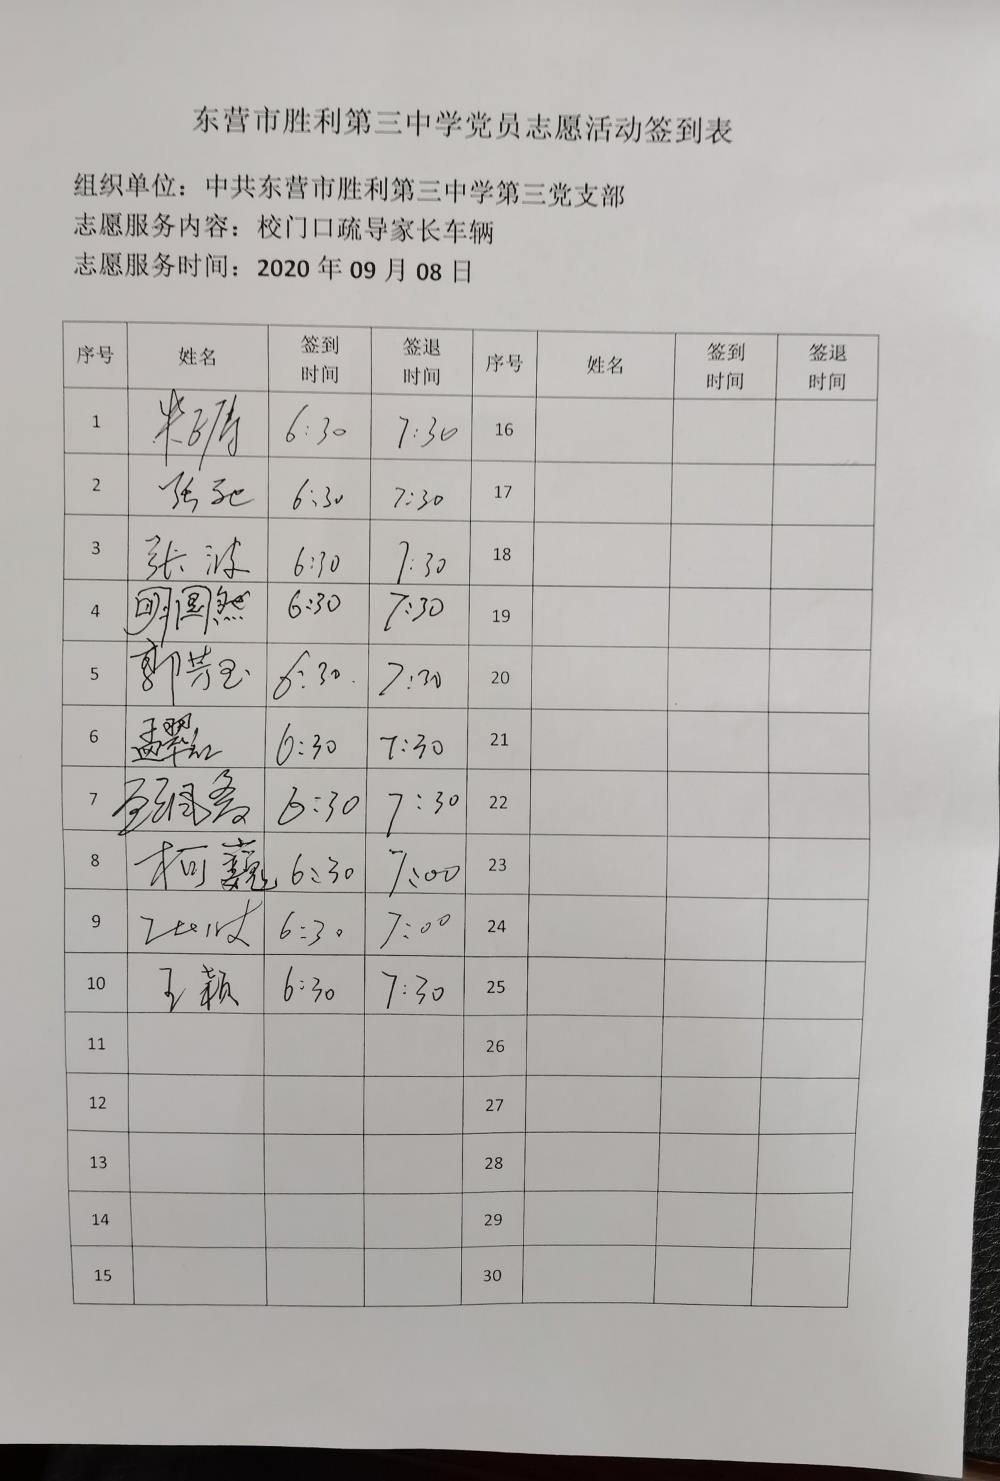 东营市胜利第三中学党员志愿活动签到表
组织单位：中共东营市胜利第三中学第三党支部
志愿服务内容：校门口疏导家长车辆
志愿服务时间：2020 年 09 月 08 日
序号 姓名 签到时间 签退时间 序号 姓名 签到时间 签退时间
1 6:30 7:30 16
2 张 6:30 7:30 17
3 张波 6:30 7:30 18
4 6:30 7:30 19
5 郭芳玉 6:30 7:30 20
6 孟翠红 6:30 7:30 21
7 6:30 7:30 22
8 柯巍 6:30 7:00 23
9 6:30 7:00 24
10 王颖 6:30 7:30 25
11 26
12 27
13 28
14 29
15 30